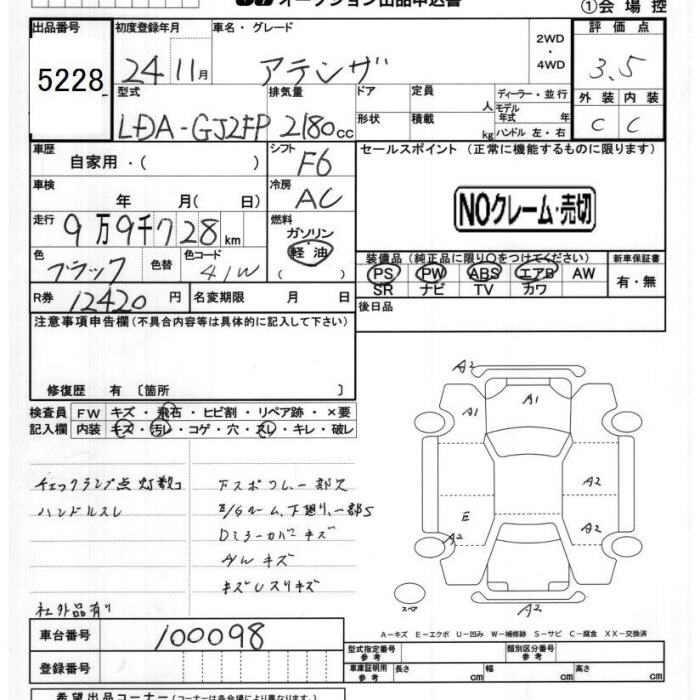 オークション出品申込書
①会場控
出品番号
5228
初度登録年月
24 11月
車名・グレード
アテンザ
2WD
・
4WD
評価点
3.5
型式
LDA-GJ2FP
排気量
2180cc
ドア
定員
人
形状
積載
kg
ディーラー・並行
モデル年式 年
ハンドル 左・右
外装
C
内装
C
車歴
自家用・( )
シフト
F6
車検
年 月( 日)
冷房
AC
走行
9万9千728km
燃料
ガソリン
軽油
( )
色
ブラック
色替
色コード
41W
R券
12420円
名変期限 月 日
セールスポイント (正常に機能するものに限ります)
NOクレーム・売切
装備品 (純正品に限り○をつけてください)
PS PW ABS エアB AW
SR ナビ TV カワ
新車保証書
有・無
後日品
注意事項申告欄 (不具合内容等は具体的に記入して下さい)
修復歴 有 〔箇所 〕
検査員記入欄
FW キズ・飛石・ヒビ割・リペア跡・×要
内装 キズ・汚レ・コゲ・穴・スレ・キレ・破レ
チェックランプ点灯数コ
ハンドルスレ
社外品有り
下スポワレ、一部欠
E/Gルーム、下廻り、一部S
Dミラーカバーキズ
A/Wキズ
キズUスリキズ
A2
A1
A1
A2
E
A2
A2
A2
スペア
A-キズ E-エクボ U-凹み W-補修跡 S-サビ C-腐食 XX-交換済
車台番号
100098
登録番号
型式指定番号
参考
類別区分番号
参考
車庫証明用
参考
長さ cm
幅 cm
高さ cm
希望出品コーナー (コーナーは各会場により異なります。)